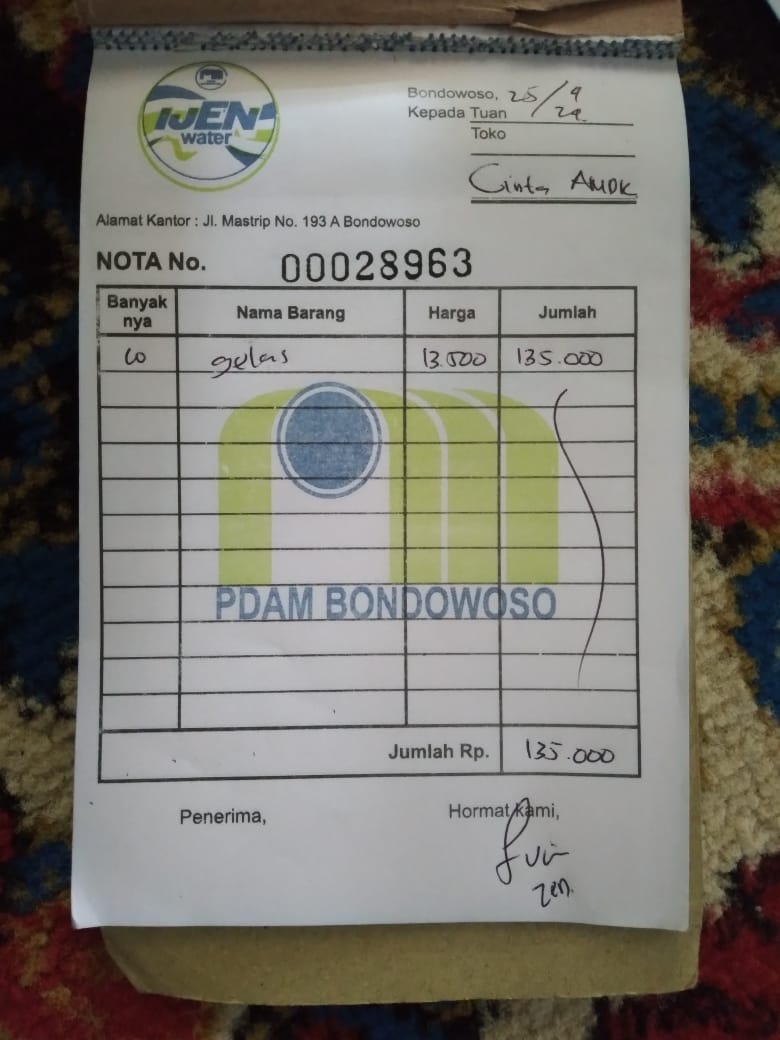 IJEN
water
Bondowoso, 25/9
Kepada Tuan 24
Toko
Cinta AMDK
Alamat Kantor : Jl. Mastrip No. 193 A Bondowoso
NOTA No. 00028963
Banyak nya Nama Barang Harga Jumlah
10 gelas 13.500 135.000
PDAM BONDOWOSO
Jumlah Rp. 135.000
Penerima, Hormat kami,